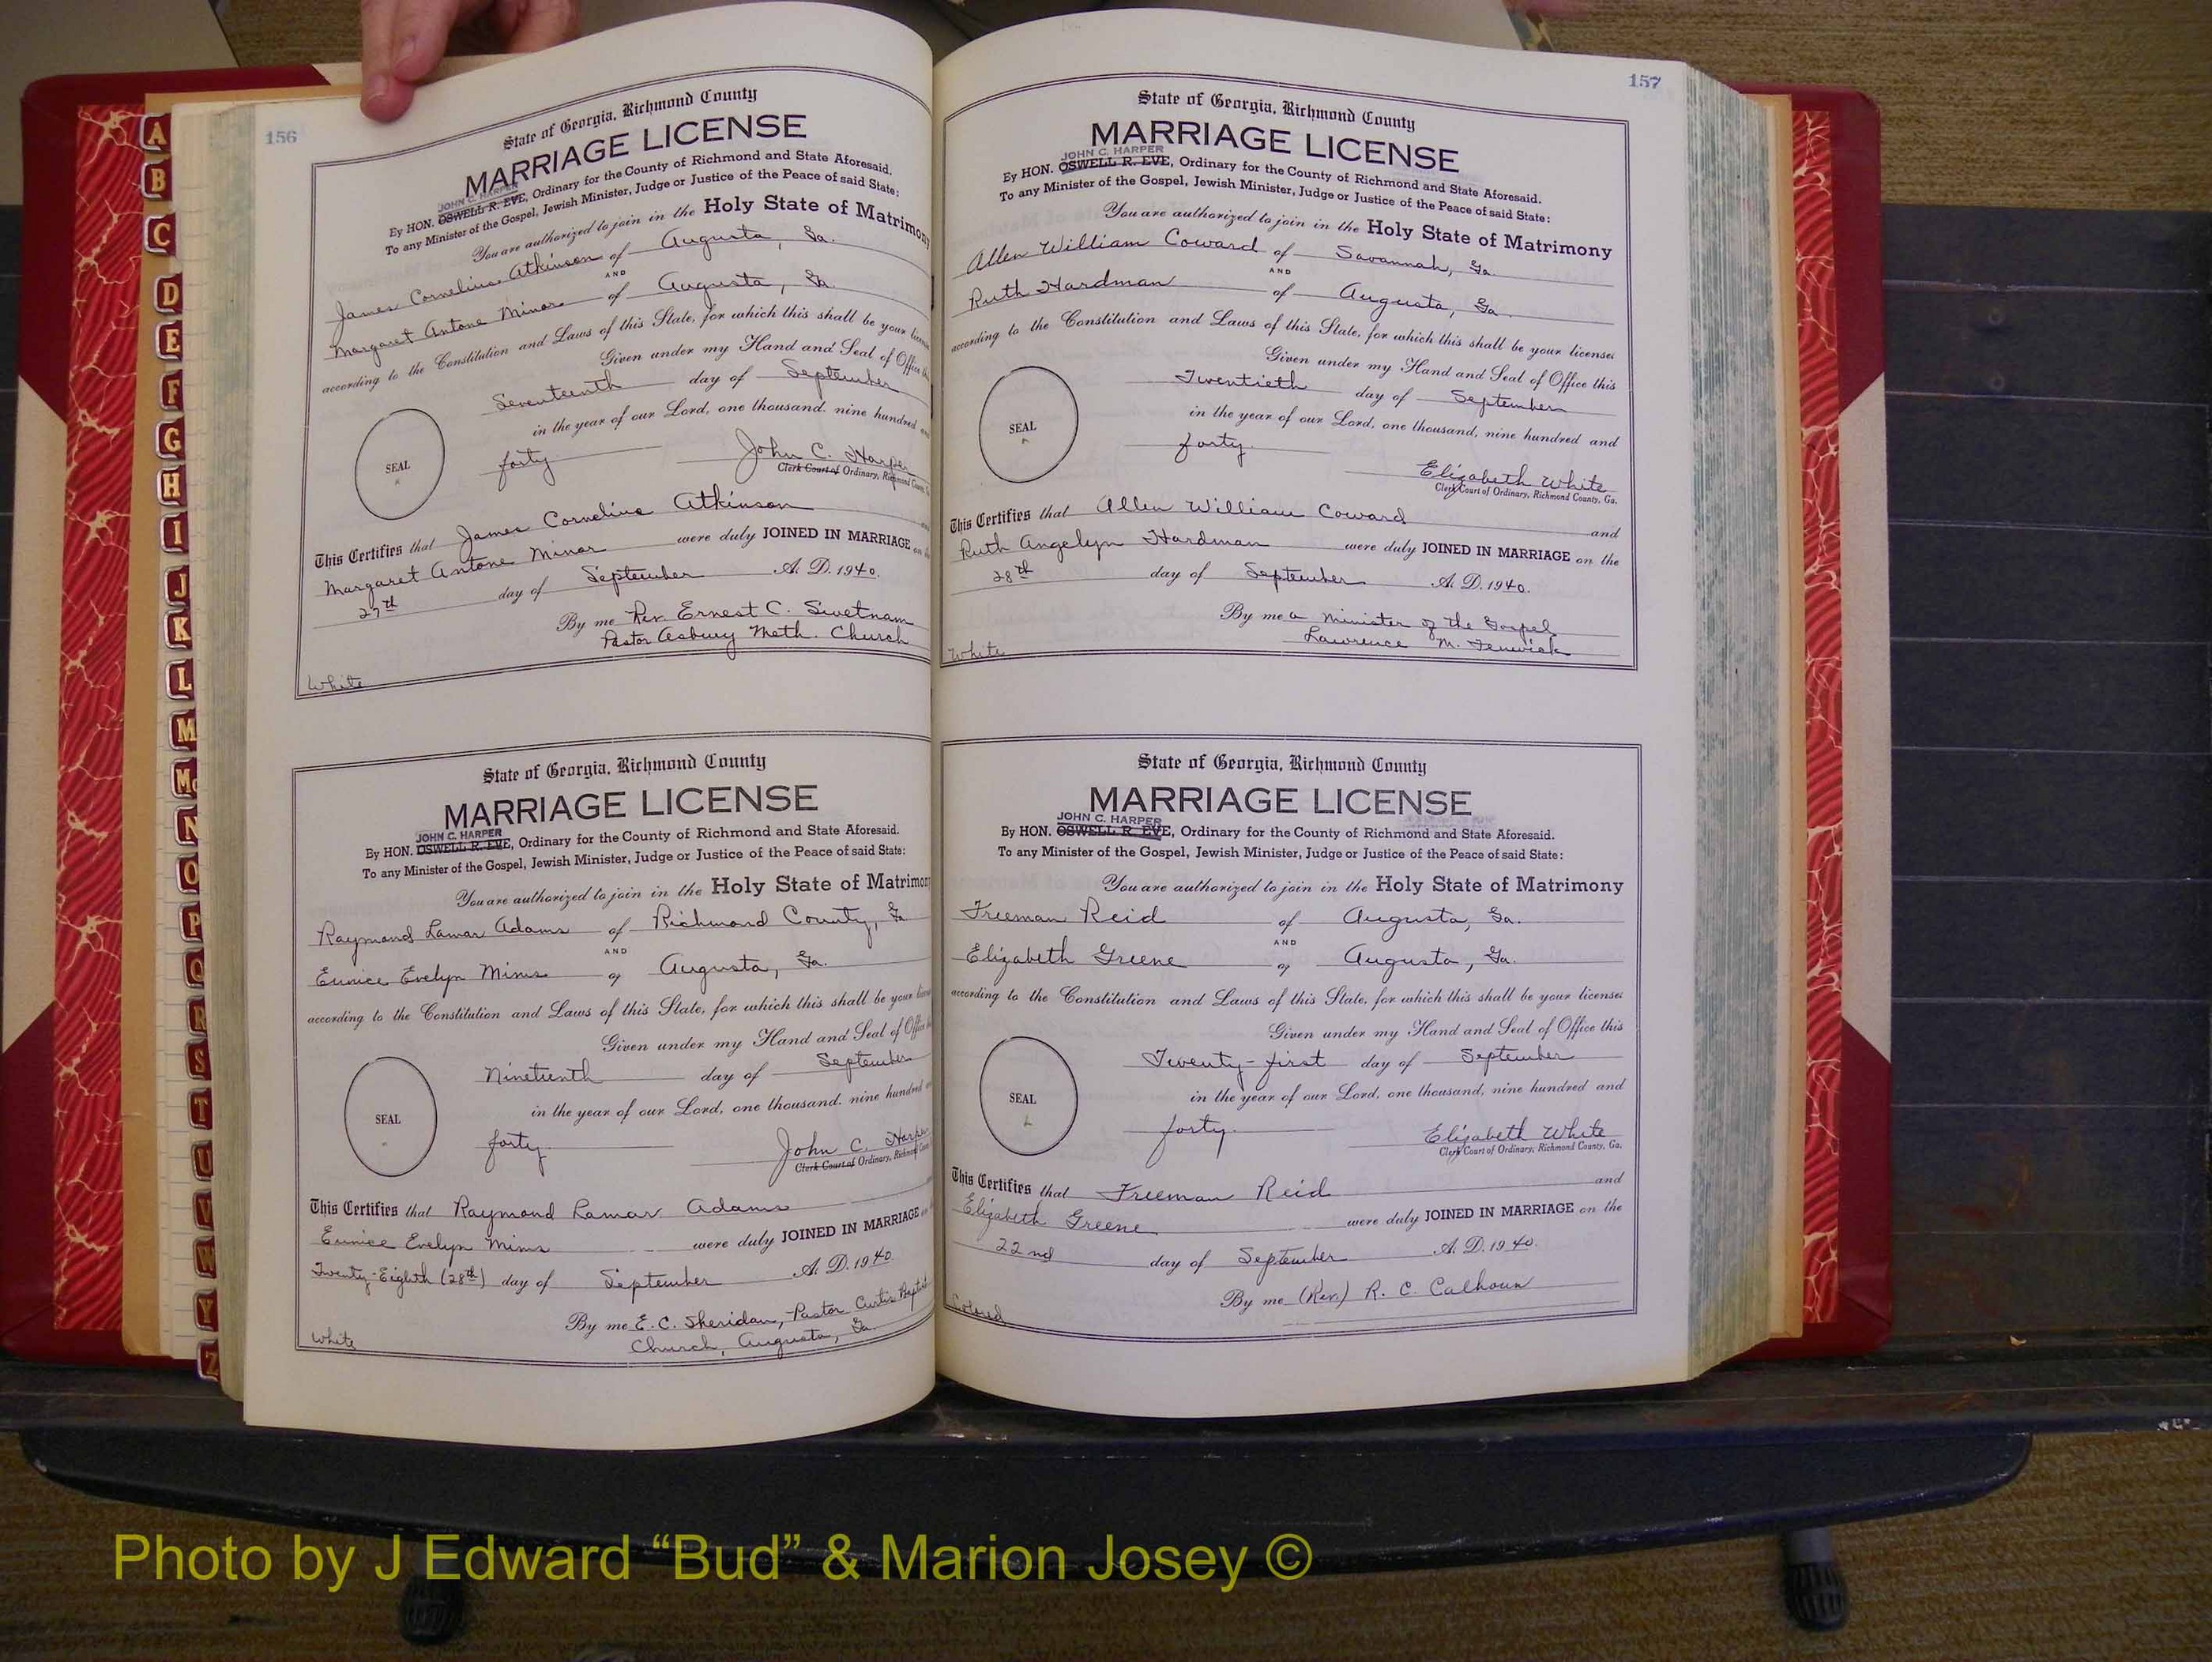 156
State of Georgia, Richmond County
MARRIAGE LICENSE
JOHN C. HARPER
By HON. OSWELL R. EVE, Ordinary for the County of Richmond and State Aforesaid.
To any Minister of the Gospel, Jewish Minister, Judge or Justice of the Peace of said State:
You are authorized to join in the Holy State of Matrimony
James Cornelius Atkinson of Augusta, Ga.
AND
Margaret Antone Minor of Augusta, Ga
according to the Constitution and Laws of this State, for which this shall be your license
Given under my Hand and Seal of Office
Seventeenth day of September
in the year of our Lord, one thousand, nine hundred
forty
John C. Harper
SEAL
Clerk Court of Ordinary, Richmond County
This Certifies that James Cornelius Atkinson
Margaret Antone Minor were duly JOINED IN MARRIAGE on
27th day of September A. D. 1940.
By me Rev. Ernest C. Swetnam
Pastor Asbury Meth. Church
White
State of Georgia, Richmond County
MARRIAGE LICENSE
JOHN C. HARPER
By HON. OSWELL R. EVE, Ordinary for the County of Richmond and State Aforesaid.
To any Minister of the Gospel, Jewish Minister, Judge or Justice of the Peace of said State:
You are authorized to join in the Holy State of Matrimon
Raymond Lamar Adams of Richmond County, Ga
AND
Eunice Evelyn Mims of Augusta, Ga.
according to the Constitution and Laws of this State, for which this shall be your
Given under my Hand and Seal of Office
Nineteenth day of September
in the year of our Lord, one thousand, nine hundred
SEAL
forty
John C. Harper
Clerk Court of Ordinary, Richmond
This Certifies that Raymond Lamar Adams
Eunice Evelyn Mims were duly JOINED IN MARRIAGE
Twenty-Eighth (28th) day of September A. D. 1940.
By me E. C. Sheridan, Pastor Curtis Baptist
Church, Augusta, Ga.
White
157
State of Georgia, Richmond County
MARRIAGE LICENSE
JOHN C. HARPER
By HON. OSWELL R. EVE, Ordinary for the County of Richmond and State Aforesaid.
To any Minister of the Gospel, Jewish Minister, Judge or Justice of the Peace of said State:
You are authorized to join in the Holy State of Matrimony
Allen William Coward of Savannah, Ga
AND
Ruth Hardman of Augusta, Ga.
according to the Constitution and Laws of this State, for which this shall be your license:
Given under my Hand and Seal of Office this
Twentieth day of September
in the year of our Lord, one thousand, nine hundred and
SEAL
forty
Elizabeth White
Clerk Court of Ordinary, Richmond County, Ga.
This Certifies that Allen William Coward and
Ruth Angelyn Hardman were duly JOINED IN MARRIAGE on the
28th day of September A. D. 1940.
By me a Minister of the Gospel
Lawrence M. Fenwick
White
State of Georgia, Richmond County
MARRIAGE LICENSE
JOHN C. HARPER
By HON. OSWELL R. EVE, Ordinary for the County of Richmond and State Aforesaid.
To any Minister of the Gospel, Jewish Minister, Judge or Justice of the Peace of said State:
You are authorized to join in the Holy State of Matrimony
Freeman Reid of Augusta, Ga.
AND
Elizabeth Greene of Augusta, Ga.
according to the Constitution and Laws of this State, for which this shall be your license:
Given under my Hand and Seal of Office this
Twenty-first day of September
in the year of our Lord, one thousand, nine hundred and
SEAL
forty.
Elizabeth White
Clerk Court of Ordinary, Richmond County, Ga.
This Certifies that Freeman Reid and
Elizabeth Greene were duly JOINED IN MARRIAGE on the
22nd day of September A. D. 1940.
By me (Rev.) R. C. Calhoun
Colored
A
B
C
D
E
F
G
H
I
J
K
L
M
Mc
N
O
P
Q
R
S
T
U
V
W
Y
Z
Photo by J Edward “Bud” & Marion Josey ©